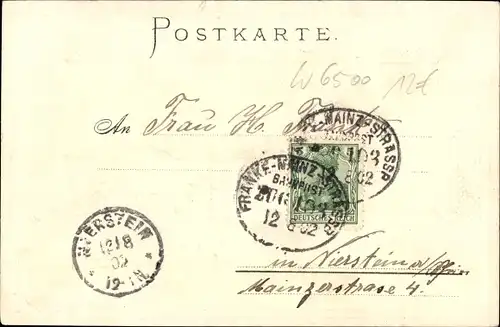 POSTKARTE.
W 6500 12€
An Frau H.
MAINZ-STRASSB
BAHNPOST
ZUG 103
12 8 02
BAHNPOST
12 8 02
DEUTSCHES REICH
NIERSTEIN
12/8
02
* 12-1N. *
in Nierstein a/Rhein
Mainzerstrasse 4.